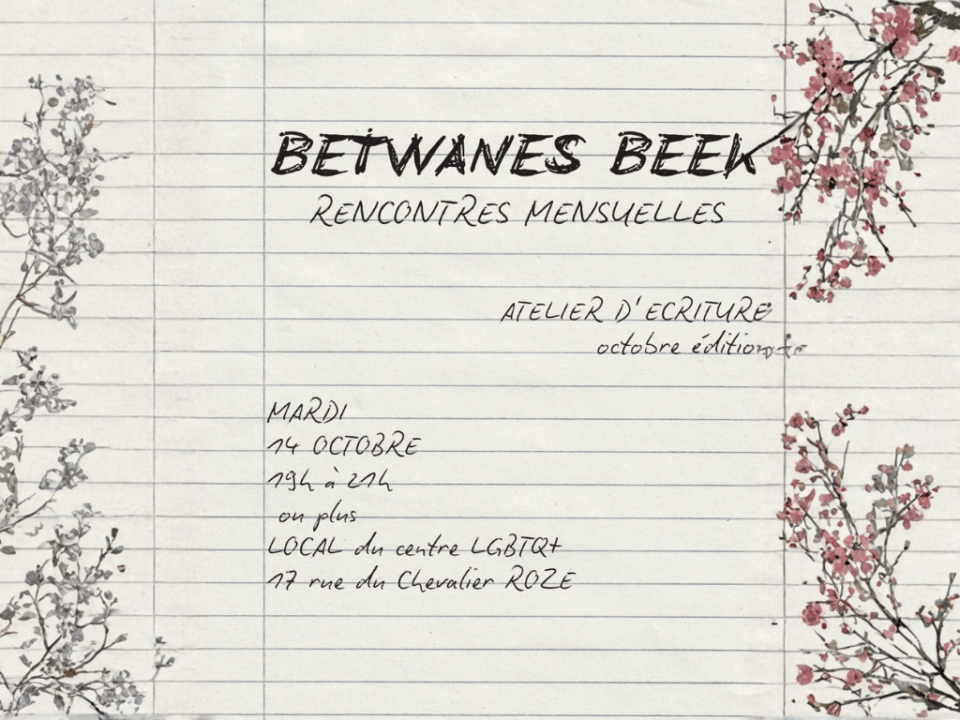 BETWANES BEEK
RENCONTRES MENSUELLES
ATELIER D'ECRITURE
octobre édition
MARDI
14 OCTOBRE
19h à 21h
ou plus
LOCAL du centre LGBTQ+
17 rue du Chevalier ROZE